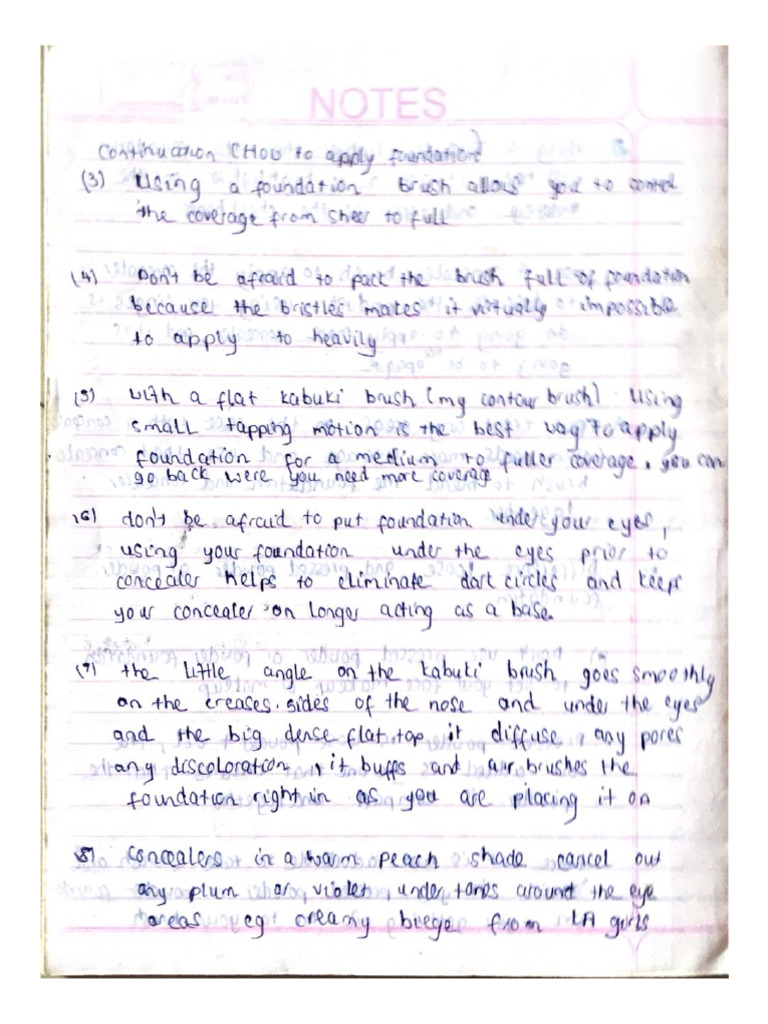 NOTES
Continuation (How to apply foundation)
(3) Using a foundation brush allows you to control
the coverage from sheer to full
(4) Don't be afraid to pack the brush full of foundation
because the bristles makes it virtually impossible
to apply to heavily
(5) With a flat kabuki brush (my contour brush) using
small tapping motion is the best way to apply
foundation for a medium to fuller coverage. you can
go back were you need more coverage
(6) don't be afraid to put foundation under your eyes,
using your foundation under the eyes prior to
concealer helps to eliminate dark circles and keeps
your concealer on longer acting as a base.
(7) the little angle on the kabuki brush goes smoothly
on the creases. sides of the nose and under the eyes
and the big dense flat top it diffuse any pores
any discoloration, it buffs and air brushes the
foundation right in as you are placing it on
(8) Concealers in a warm peach shade cancel out
any plum or violet, under tones around the eye
areas eg creamy biege from LA girls